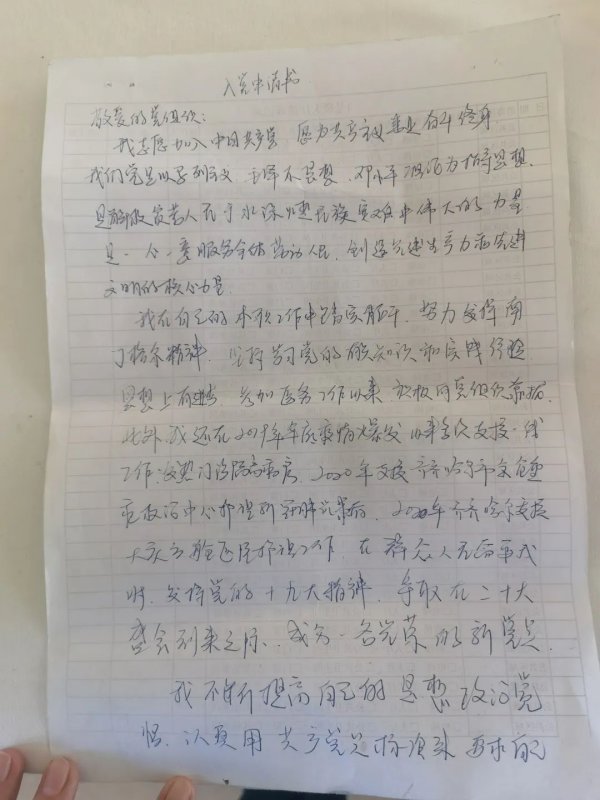 入党申请书
敬爱的党组织：
我志愿加入中国共产党 愿为共产主义事业奋斗终身
我们党是以马列主义、毛泽东思想、邓小平理论为指导思想、
是解救劳苦人民于水深火热民族灾难中伟大的力量
是一个一直服务全体劳动人民、创造先进生产力和先进
文明的核心力量
我在自己的本职工作中踏实肯干、努力发扬南
丁格尔精神、坚持学习党的知识和实践经验
思想上 参加医务工作以来 积极向党组织靠拢
此外我还在2019年年底疫情爆发以来多次支援一线
工作：发热门诊隔离病房、2020年支援齐齐哈尔市
救治中心护理新冠肺炎患者、年齐齐哈尔支援
大庆方舱医院护理工作、在
时、发扬党的十九大精神、争取在二十大
盛会到来之际、成为一名光荣的新党员
我不断提高自己的思想政治觉
悟、认真用共产党员标准来要求自己